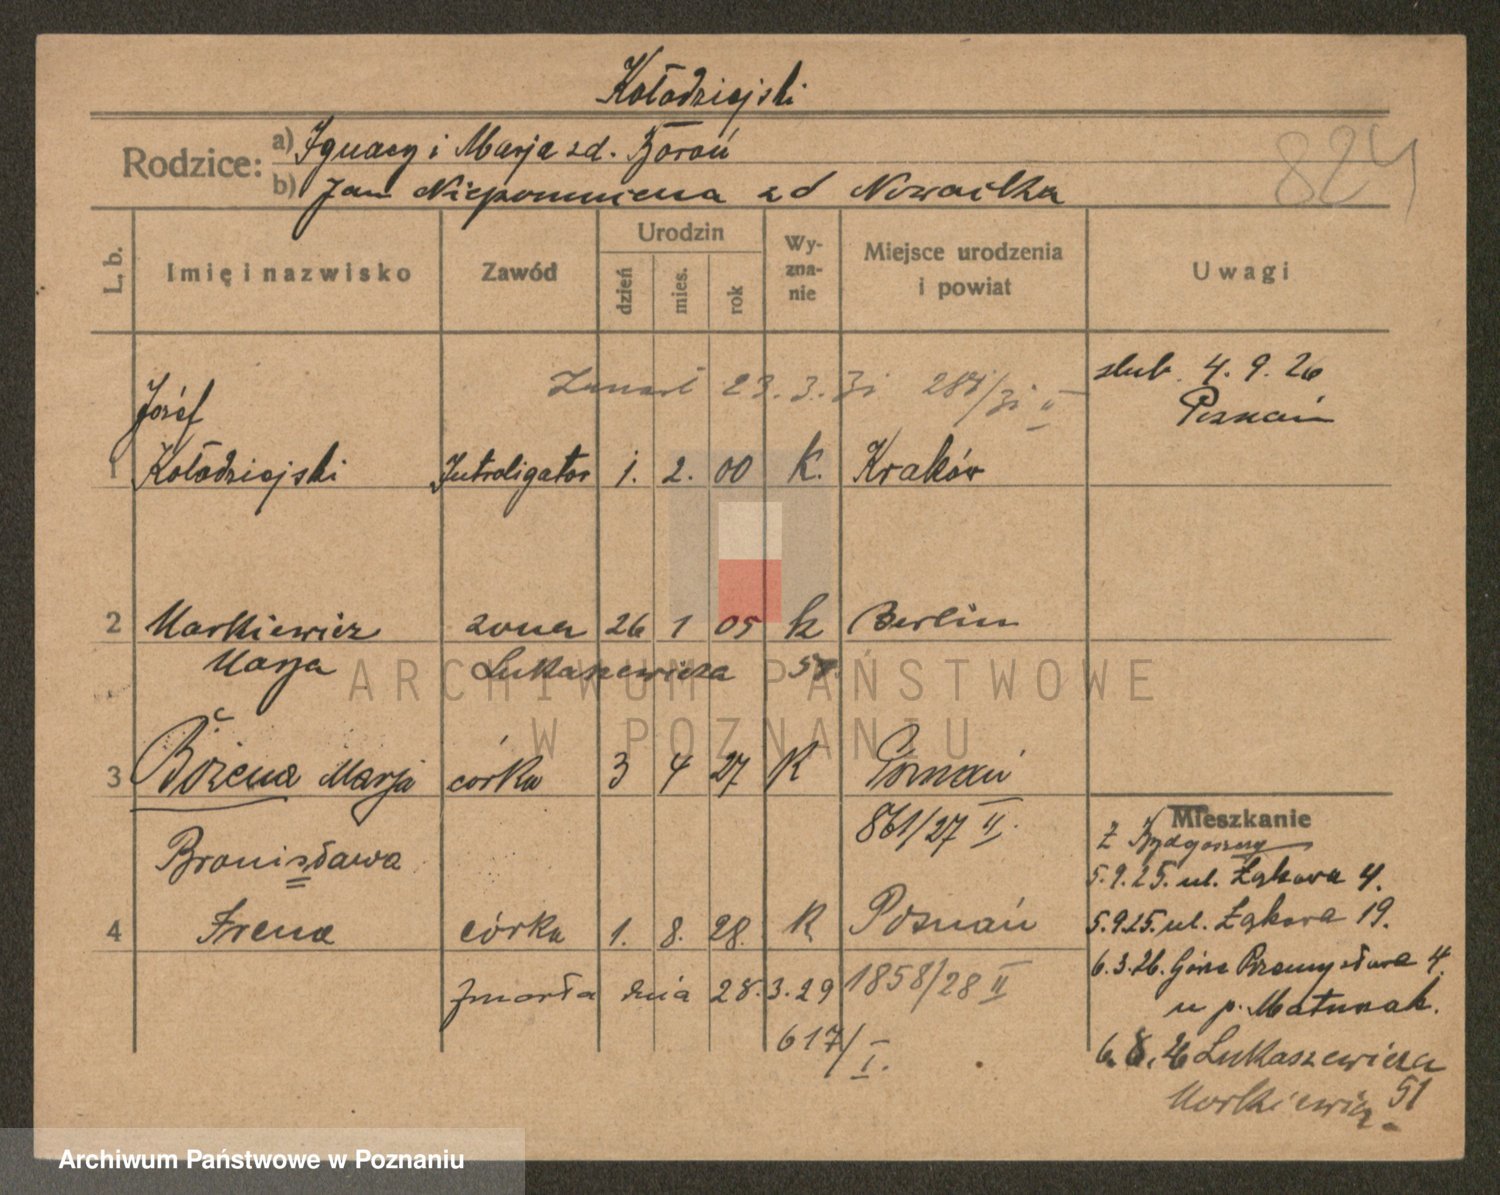 Kołodziejski
Rodzice: a) Ignacy i Marja zd. Boroń
b) Jan Niepomucena zd Nowailka
824
L. b. Imię i nazwisko Zawód Urodzin dzień mies. rok Wyznanie Miejsce urodzenia i powiat Uwagi
Zmarł 23.3.31 287/31 II
ślub 4. 9. 26
Poznań
Józef
1 Kołodziejski Introligator 1. 2. 00 K. Kraków
2 Markiewicz żona 26 1 05 k Berlin
Marja Łukaszewicza 51.
3 Bożena Marja córka 3 4 27 K Poznań
861/27 II.
Bronisława
4 Irena córka 1. 8. 28. K Poznań
zmarła dnia 28.3.29 1858/28 II
617/I.
Mieszkanie
Z Bydgoszczy
5.9.25. ul. Łąkowa 4.
5.9.25. ul. Łąkowa 19.
6.3.26. Góra Przemysława 4.
u p. Matuszak.
6. 8. 26 Łukaszewicza
51
Markiewicz.
ARCHIWUM PAŃSTWOWE
W POZNANIU
Archiwum Państwowe w Poznaniu